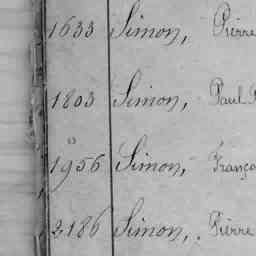 1633 Simon, Pierre
1803 Simon, Paul
1956 Simon, Franço
2186 Simon, Pierre